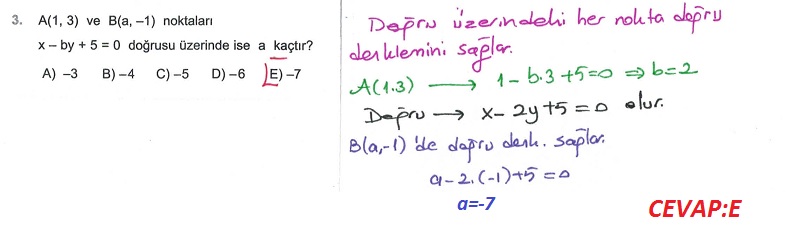 3. A(1, 3) ve B(a, –1) noktaları
x – by + 5 = 0 doğrusu üzerinde ise a kaçtır?
A) –3 B) –4 C) –5 D) –6 E) –7
Doğru üzerindeki her nokta doğru
denklemini sağlar.
A(1.3) → 1 – b.3 + 5 = 0 ⇒ b = 2
Doğru → x – 2y + 5 = 0 olur.
B(a,-1) 'de doğru denk. sağlar.
a – 2.(-1) + 5 = 0
a=-7
CEVAP:E